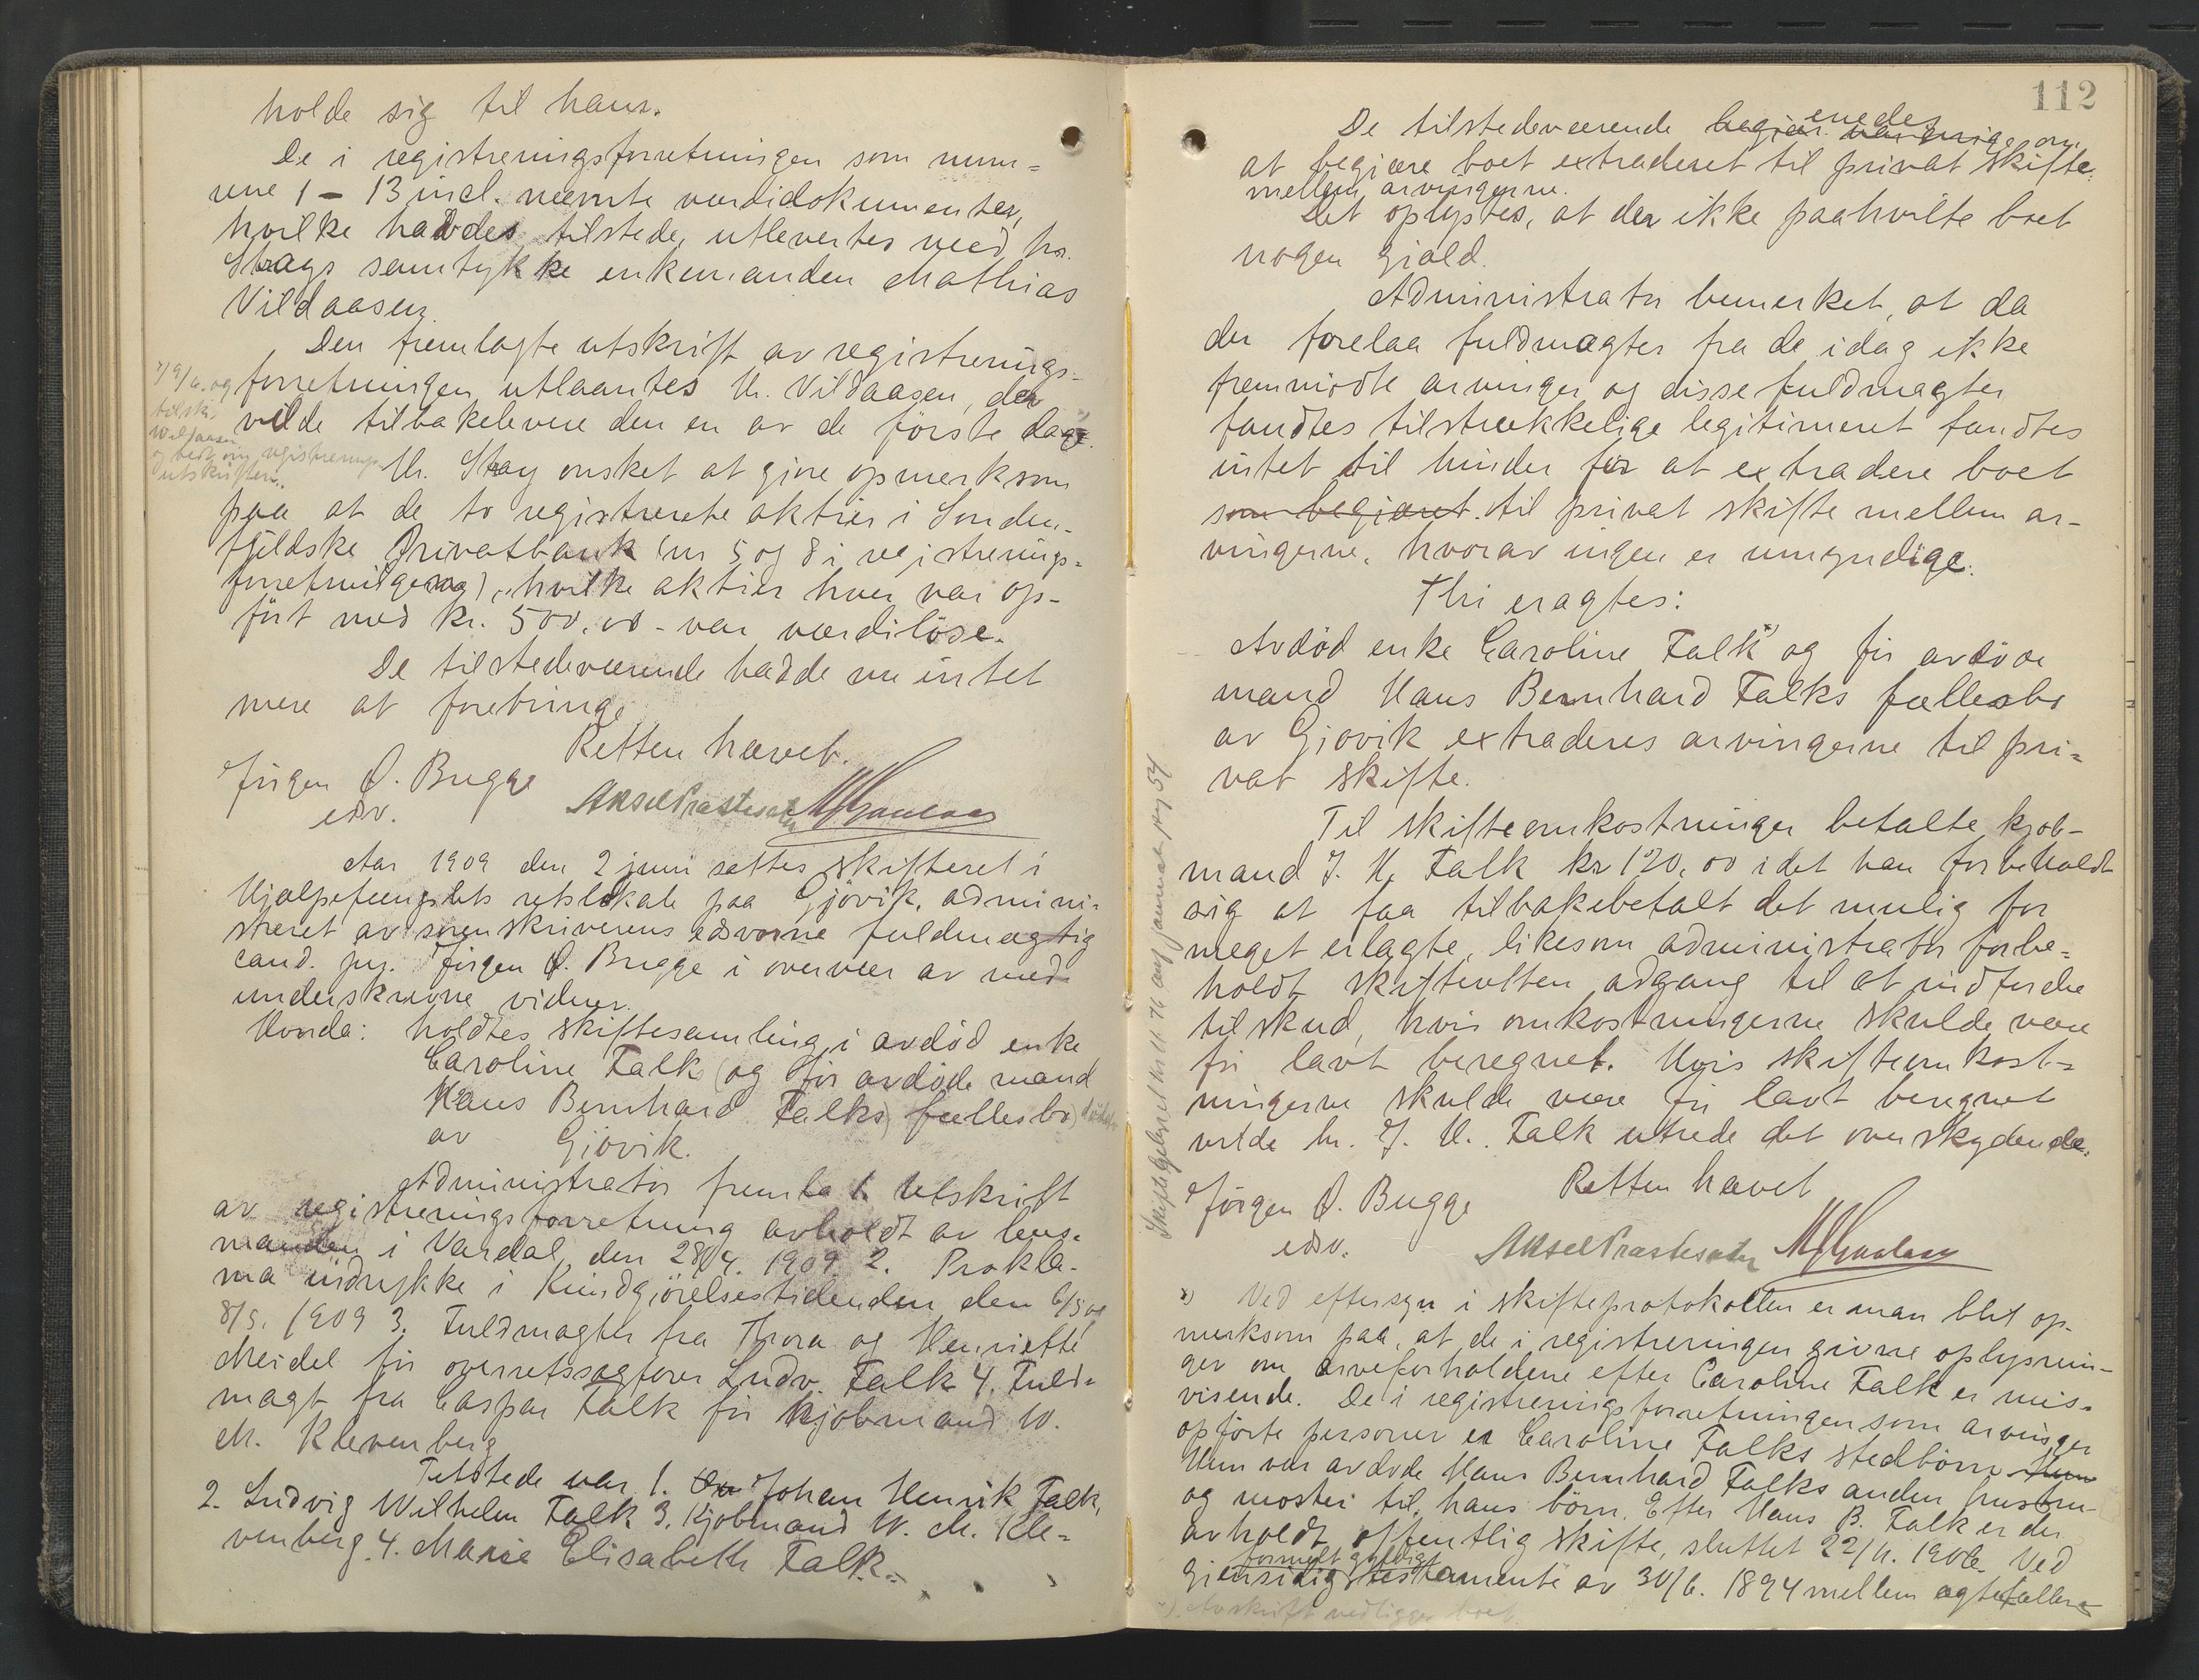 holde sig til hans.
De i registreringsforretningen som num-
rene 1 - 13 incl. nævnte værdidokumenter,
hvilke havdes tilstede, utlevertes med hr.
Strags samtykke enkemanden Mathias
Vildaasen.
Den fremlagte utskrift av registrerings-
forretningen utlaantes Hr. Vildaasen, der
vilde tilbakelevere den en av de første dage.
Hr. Strag ønsket at gjøre opmerksom
paa at de to registrerte aktier i Sønden-
fjeldske Privatbank (nr 5 og 8 i registrerings-
forretningen), hvilke aktier hver var op-
ført med kr. 500,00 - var værdiløse.
De tilstedeværende hadde nu intet
mere at forebringe
Retten hævet.
Jørgen Ø. Bugge
edsv.
Aksel Præstesæter
Aar 1909 den 2 juni sattes skifteret i
Hjælpefængslets retslokale paa Gjøvik, admini-
streret av sorenskriverens edsvorne fuldmægtig
cand. jur. Jørgen Ø. Bugge i overvær av med-
underskrevne vidner.
Hvorda: holdtes skiftesamling i avdød enke
Caroline Falk (og før avdøde mand
Hans Bernhard Falks) fællesbo
av Gjøvik.
Administrator fremla 1. Utskrift
av registreringsforretning avholdt av lens-
manden i Vardal den 28/4. 1909 2. Prokla-
ma indrykke i Kundgjørelsestidenden den 6/5 og
8/5. 1909 3. Fuldmagter fra Thora og Henriette
Meidel for overretssagfører Ludv. Falk 4. Fuld-
magt fra Caspar Falk for kjøbmand W.
M. Klevenberg
Tilstede var 1. Johan Henrik Falk,
2. Ludvig Wilhelm Falk 3. Kjøbmand W. M. Kle-
venberg 4. Marie Elisabeth Falk.-
112
De tilstedeværende begjær. var enige om enedes
at begjære boet extraderet til privat skifte
mellem arvingerne.
Det oplystes, at der ikke paahvilte boet
nogen gjæld.
Administrator bemerket, at da
der forelaa fuldmagter fra de idag ikke
fremmødte arvinger og disse fuldmagter
fandtes tilstrækkelige legitimeret fandtes
intet til hinder for at extradere boet
som begjæret til privat skifte mellem ar-
vingerne, hvorav ingen er umyndige.
Thi eragtes:
Avdød enke Caroline Falk x) og før avdøde
mand Hans Bernhard Falks fællesbo
av Gjøvik extraderes arvingerne til pri-
vat skifte.
Til skifteomkostninger betalte kjøb-
mand J. H. Falk kr 120,00 idet han forbeholdt
sig at faa tilbakebetalt det mulig for
meget erlagte, likesom administrator forbe-
holdt skifteretten adgang til at indfordre
tilskud, hvis omkostningerne skulde være
for lavt beregnet. Hvis skifteomkost-
ningerne skulde være for lavt beregnet
vilde hr. J. H. Falk utrede det overskydende.
Retten hævet
Jørgen Ø. Bugge
edsv.
Aksel Præstesæter
x) Ved eftersyn i skifteprotokollen er man blit op-
merksom paa, at de i registreringen givne oplysnin-
ger om arveforholdene efter Caroline Falk er mis-
visende. De i registreringsforretningen som arvinger
opførte personer er Caroline Falks stedbørn. Hun
Hun var avdøde Hans Bernhard Falks anden hustru
og moster til hans børn. Efter Hans B. Falk er der
avholdt offentlig skifte, sluttet 22/11. 1906. Ved
formelt gyldigt
gjensidig testamente av 30/6. 1894 mellem ægtefællerne
x) Avskrift vedligger boet.